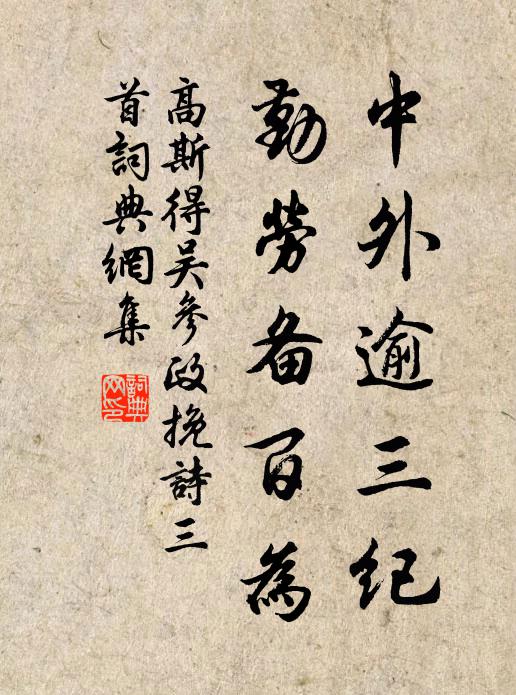 中外逾三纪
勤勞备百為
高斯得吴參政挽詩三
首詞典網集
詞典网印